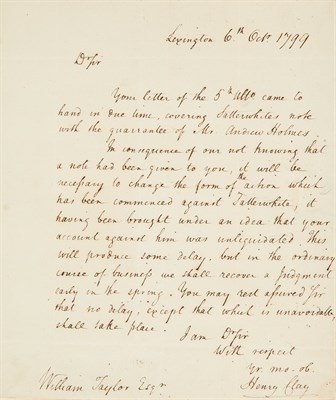 Lexington 6.th Octr 1799
Dr Sir
Your letter of the 5th Ulto. came to
hand in due time, covering Satterwhites note
with the guarrantee of Mr. Andrew Holmes.
In consequence of our not knowing that
a note had been given to you, it will be
necessary to change the form of the action which
has been commenced against Satterwhite, it
having been brought under an idea that your
account against him was unliquidated. This
will produce some delay, but in the ordinary
course of business we shall recover a Judgment
early in the spring. You may rest assured Sir
that no delay, except that which is unavoidable,
shall take place.
I am Dr Sir
With respect
Yr. mo. ob.
Henry Clay
William Taylor Esqr.